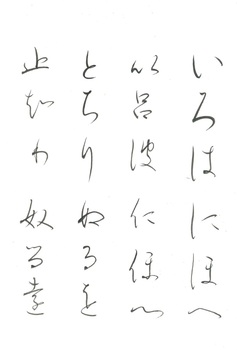 いろはにほへ
以呂波仁保部
とちりぬるを
止知利奴留遠